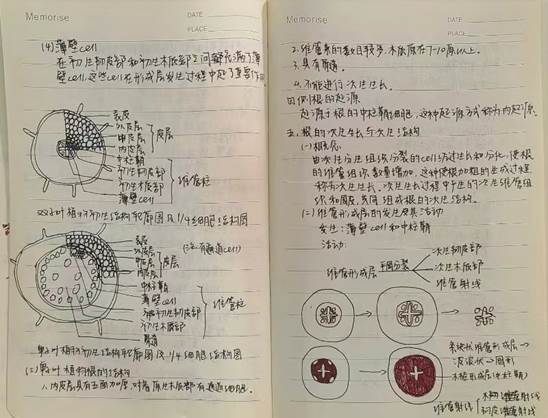 Memorise
DATE
PLACE
(4) 薄壁cell
在初生韧皮部和初生木质部之间常充满了薄
壁cell,这些cell在形成层发生过程中起了重要作用
表皮
外皮层
中皮层
内皮层
皮层
中柱鞘
初生木质部
初生韧皮部
薄壁cell
维管柱
双子叶植物初生结构轮廓图及1/4细胞结构图
表皮
外皮层
中皮层
内皮层
皮层
(注:有通道cell)
中柱鞘
薄壁cell
初生韧皮部
初生木质部
髓
维管柱
单子叶植物初生结构轮廓图及1/4细胞结构图
(二)单子叶植物根的结构
1.内皮层具有五面加厚,对着原生木质部有通道细胞。
Memorise
DATE
PLACE
2.维管束的数目较多,木质部在7-10原以上。
3.具有髓
4.不能进行次生生长
四.侧根的起源
起源于根的中柱鞘细胞,这种起源方式称为内起源。
五、根的次生生长与次生结构
(一)概念
由次生分生组织分裂的cell经过生长和分化,使根
的维管组织数量增加,这种使根加粗的生成过程
称为次生生长。次生生长过程中产生的次生维管组
织和周皮,共同组成根的次生结构。
(二)维管形成层的发生及其活动
发生:薄壁cell和中柱鞘
活动:
维管形成层
平周分裂
次生韧皮部
次生木质部
维管射线
条状维管形成层→
波浪状→圆形
木栓形成层(中柱鞘)
维管射线
木射线
韧皮射线